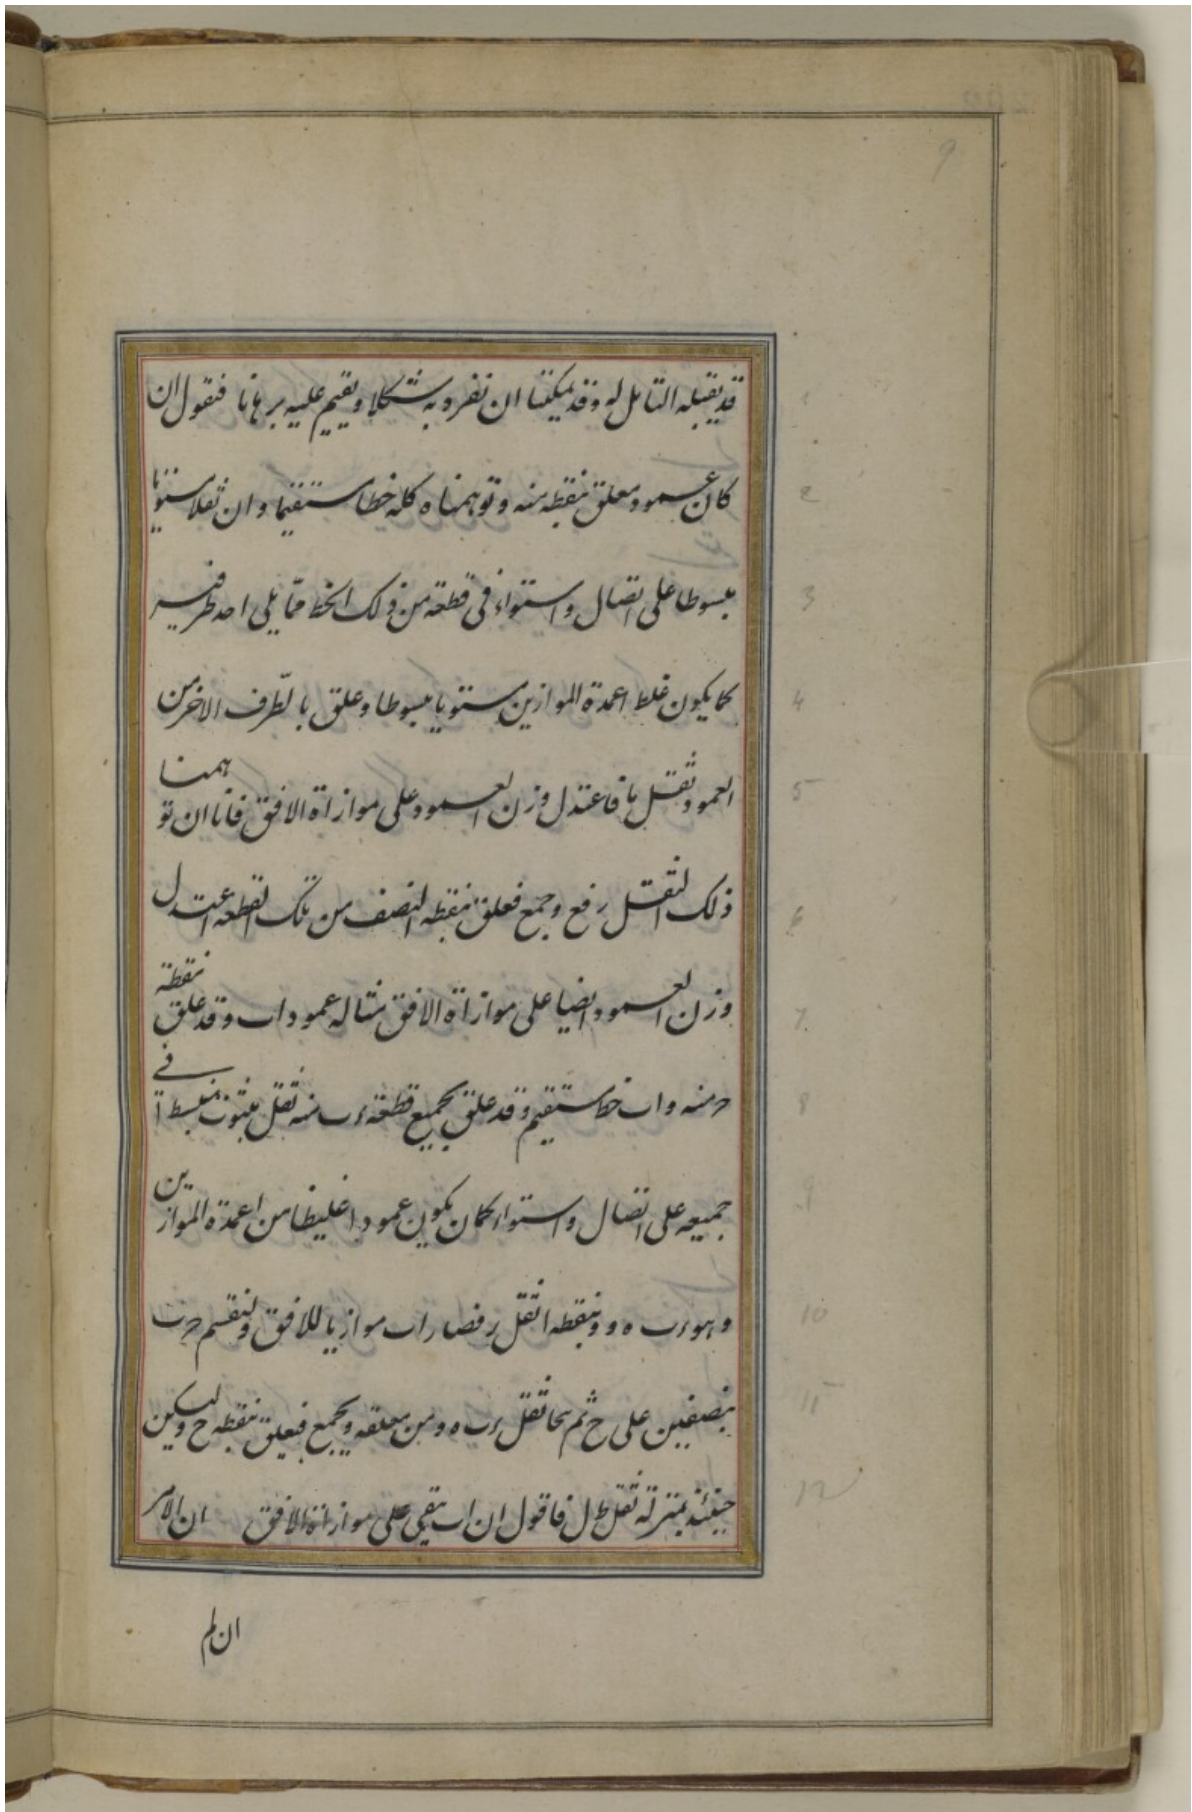 9
قد يقبله التامل له وقد يمكننا ان نفرد به شكلا ويقيم عليه برهانا فنقول ان
1
كان عمود معلق بنقطه منه وتوهمناه كله خطا مستقيما وان ثقلا مستويا
2
مبسوطا على اتصال واستواء فى قطعة من ذلك الخط مما يلى احد طرفيه
3
كما يكون غلظ اعمدة الموازين مستويا مبسوطا وعلق بالطّرف الاخر من
4
العمود ثقل ما فاعتدل وزن العمود على موازاة الافق فانا ان توهمنا
5
ذلك الثقل رفع وجمع فعلق بنقطه النصف من تلك القطعه اعتدل
6
وزن العمود ايضا على موازاة الافق مثاله عمود اب وقد علق بنقطة
7
حـ منه واب خط مستقيم وقد علق بجميع قطعة ءب منه ثقل مبثوث منبسط فے
8
جميعه على اتصال واستواء كما ن يكون عمودا غليظا من اعمدة الموازين
9
وهو ءب ه و وبنقطه ا ثقل ر فصار اب موازيا للافق ولنقسم
10
بنصفين على ح ثم نحا ثقل ءب ه و من معلقه ويجمع فيعلق بنقطه ح وليكن
11
حينئذ بمنزلة ثقل ط ل فاقول ان اب يبقى على موازاة الافق ان الامر
12
ان لم